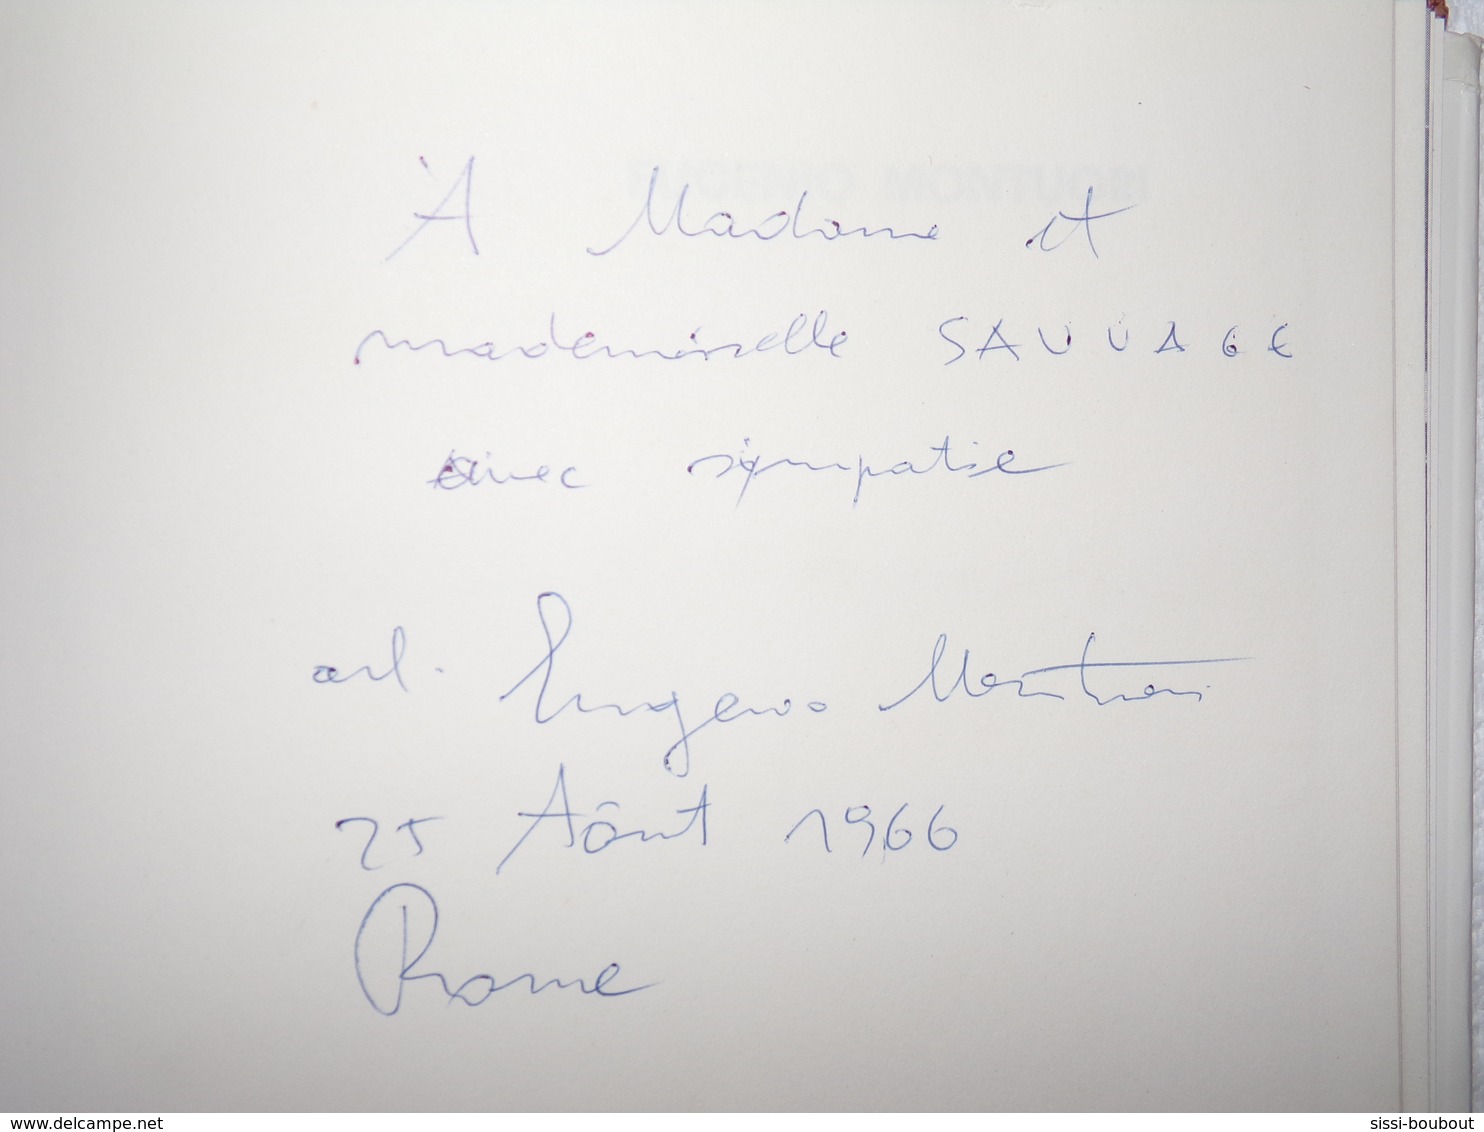 À Madame et
mademoiselle SAUVAGE
avec sympatie
Eugenio Montuori
25 Aôut 1966
Rome
EUGENIO MONTUORI
delcampe.net
sissi-boubout